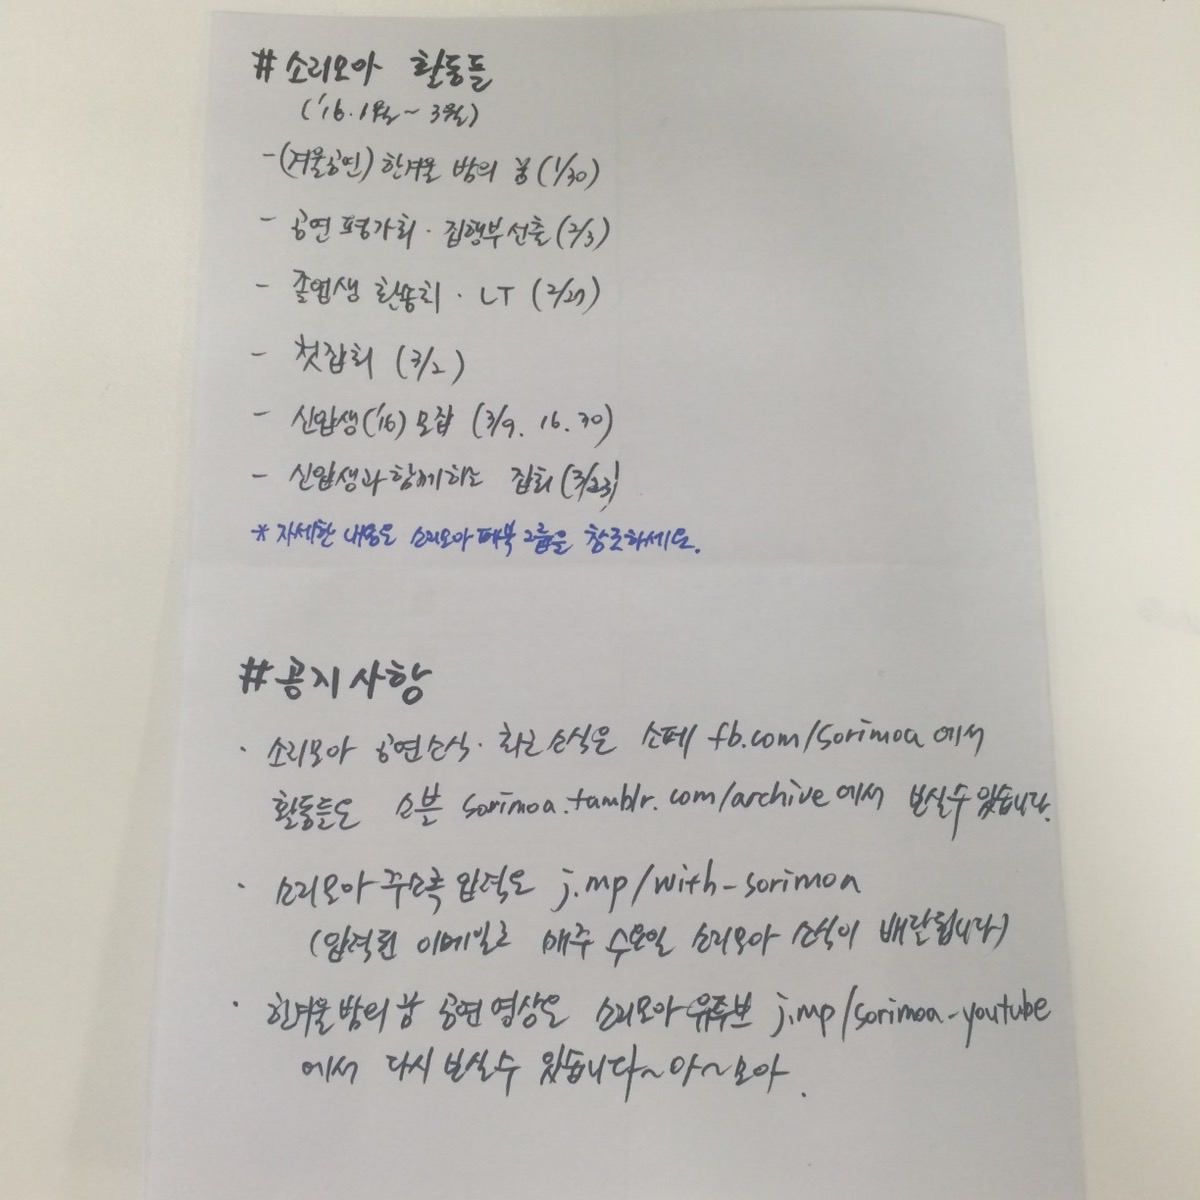 # 소리모아 활동들
('16. 1월 ~ 3월)
- (겨울공연) 한겨울 밤의 꿈 (1/30)
- 공연 평가회 · 집행부 선출 (2/3)
- 졸업생 환송회 · LT (2/27)
- 첫집회 (3/2)
- 신입생('16) 모집 (3/9. 16. 30)
- 신입생과 함께하는 집회 (3/23)
* 자세한 내용은 소리모아 페북 그룹을 참조하세요.
# 공지사항
· 소리모아 공연소식 · 최근 소식은 소페 fb.com/sorimoa 에서
활동들은 소블 sorimoa.tumblr.com/archive 에서 보실수 있습니다.
· 소리모아 주소록 입력은 j.mp/with-sorimoa
(입력된 이메일로 매주 수요일 소리모아 소식이 배달됩니다)
· 한겨울 밤의 꿈 공연 영상은 소리모아 유튜브 j.mp/sorimoa-youtube
에서 다시 보실수 있습니다~ 아~ 모아.